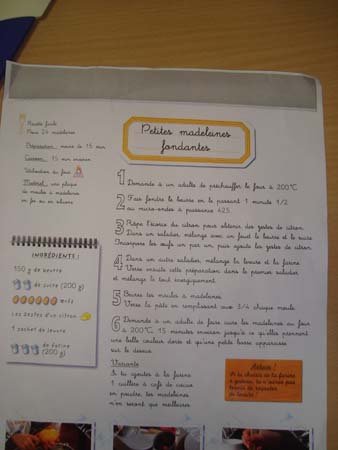 Recette facile
Pour 25 madeleines
Préparation : moins de 15 min
Cuisson : 15 min environ
Utilisation du four
Matériel : une plaque
de moules à madeleines
en fer ou en silicone
Petites madeleines
fondantes
INGRÉDIENTS :
150 g de beurre
de sucre (200 g)
œufs
Les zestes d'un citron
1 sachet de levure
de farine
(200 g)
1 Demande à un adulte de préchauffer le four à 200°C.
2 Fais fondre le beurre en le passant 1 minute 1/2
au micro-ondes à puissance
3 Râpe l'écorce du citron pour obtenir des zestes de citron.
Dans un saladier, mélange avec un fouet le beurre et le sucre.
Incorpore les œufs un par un, puis ajoute les zestes de citron.
4 Dans un autre saladier, mélange la levure et la farine.
Verse ensuite cette préparation dans le premier saladier
et mélange le tout énergiquement.
5 Beurre tes moules à madeleines.
Verse la pâte en remplissant aux 3/4 chaque moule.
6 Demande à un adulte de faire cuire les madeleines au four
à 200°C, 15 minutes environ jusqu'à ce qu'elles prennent
une belle couleur dorée et qu'une petite bosse apparaisse
sur le dessus.
Variante
Si tu ajoutes à la farine
1 cuillère à café de cacao
en poudre, tes madeleines
n'en seront que meilleures.
Astuce !
Si tu choisis de la farine
à gâteaux, tu n'auras pas
besoin de rajouter
de levure !